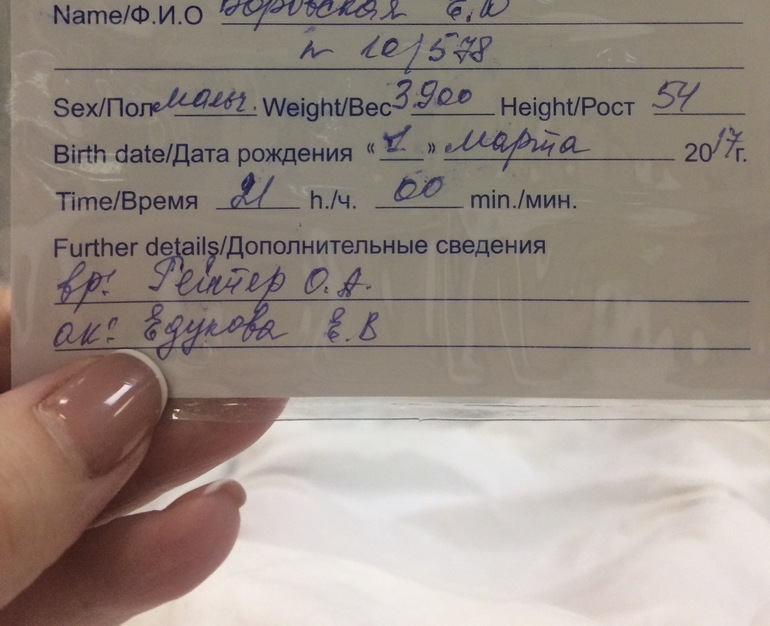 Name/Ф.И.О Боровская Е.Ю
n 10/578
Sex/Пол мальч. Weight/Вес 3900 Height/Рост 54
Birth date/Дата рождения « 1 » марта 2017г.
Time/Время 21 h./ч. 00 min./мин.
Further details/Дополнительные сведения
вр: Рейтер О.А.
ак: Едукова Е.В